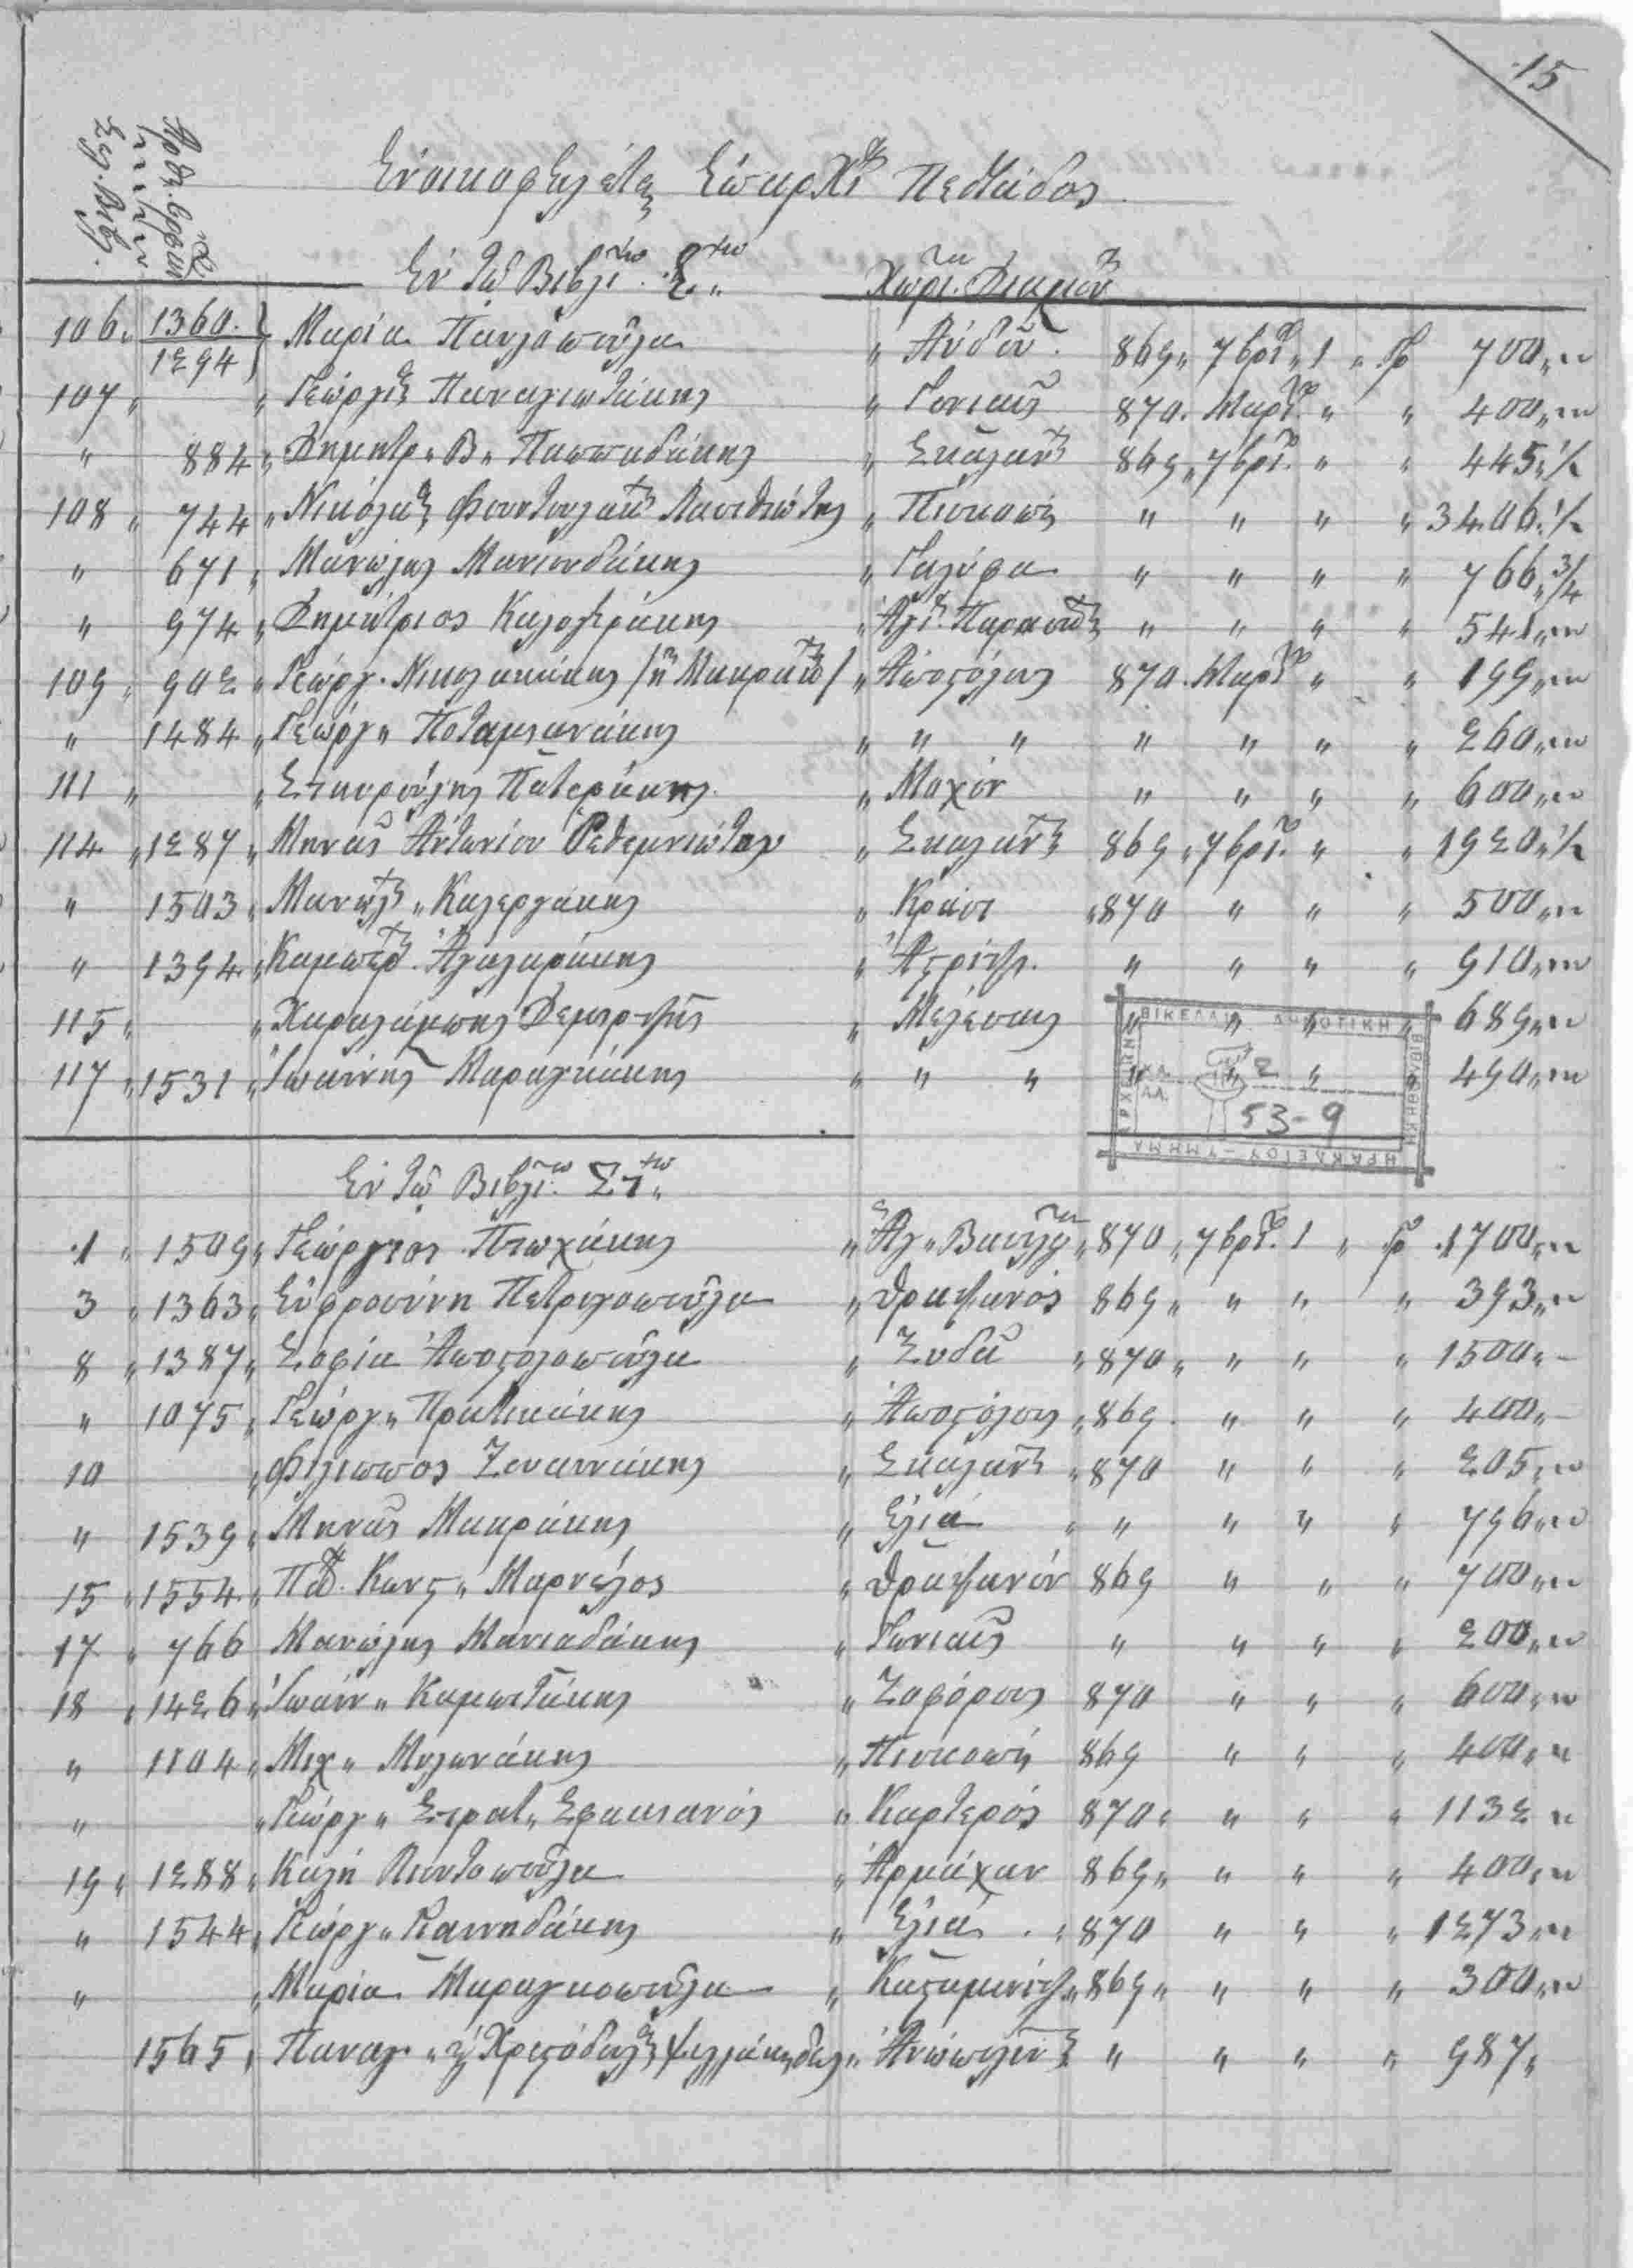 15
Ἀριθ.
Σελ. Βιβλ.
Ἐνοικοφειλέται Ἐπαρχί Πεδιάδος
Ἐν τῷ Βιβλίῳ Ε.τῳ Χωρί. Διαμον
106 „ 1360. 1294 } Μαρία Παυλοπούλα „ Αὐδοῦ. 869 „ 7βρί „ 1 „ Γρ 700 „ „
107 „ „ Γεώργιος Παναγιωτάκης „ Γωνιαῖς 870. Μαρτ. „ „ 400 „ „
„ 884 „ Δημητρ „ Β „ Παππαδάκης „ Σκαλάνι 869 „ 7βρί. „ „ 445 „ 1/2
108 „ 744 „ Νικόλαος Φουντουλάκης Λασιθιώτης „ Πισκοπή „ „ „ „ 3406. 1/2
„ 671 „ Μανώλης Μανιουδάκης „ Γαλύφα „ „ „ „ 766 „ 3/4
„ 974 „ Δημήτριος Καλογεράκης „ Ἁγί. Παρασκ „ „ „ „ 541 „ „
109 „ 902 „ Γεώργ. Νικολακάκης / ἢ Μακράκ / „ Ἀποστόλους 870. Μαρτ „ „ 199 „ „
„ 1484 „ Γεώργ „ Ποταμιανάκης „ „ „ „ „ „ „ 260 „ „
111 „ „ Σταυρούλης Πατεράκης „ Μοχόν „ „ „ „ 600 „ „
114 „ 1287 „ Μηνᾶς Ἀντωνίου Ρεθεμνιώτης „ Σκαλάνι 869 „ 7βρί. „ „ 1920 „ 1/2
„ 1503 „ Μανώλ „ Καλεργάκης „ Κράσι „ 870 „ „ „ 500 „ „
„ 1394 „ Ἀγαλαράκης „ Ἀστρίτζι. „ „ „ „ 910 „ „
115 „ „ Χαραλάμπης Δεμιρτζῆς „ Μελέσαις „ „ „ „ 689 „ „
117 „ 1531 „ Ἰωάννης Μαραγκάκης „ „ „ „ „ „ „ 490 „ „
ΒΙΚΕΛΑΙΑ ΔΗΜΟΤΙΚΗ ΒΙΒΛΙΟΘΗΚΗ
ΗΡΑΚΛΕΙΟΥ - ΤΜΗΜΑ ΑΡΧΕΙΩΝ
2
53-9
Ἐν τῷ Βιβλί.ῳ Στ.τῳ
1 „ 1509 „ Γεώργιος Πτωχάκης „ Ἁγ „ Βασίλ „ 870 „ 7βρί. 1 „ Γρ 1700 „ „
3 „ 1363 „ Εὐφροσύνη Πετριχοπούλα „ Θραψανός 869 „ „ „ „ 393 „ „
8 „ 1387 „ Σοφία Ἀποστολοπούλα „ Ξυδᾶ „ 870 „ „ „ „ 1500 „ -
„ 1075 „ Γεώργ „ Πρατικάκης „ Ἀποστόλους „ 869. „ „ „ 400 „ -
10 „ Φίλιππος Ζαναννάκης „ Σκαλάνι „ 870 „ „ „ 205 „ „
„ 1539 „ Μηνᾶς Μακράκης „ Ἐλιά „ „ „ „ „ 796 „ „
15 „ 1554 „ Πδ. Κωνς „ Μαρνέλος „ Θραψανόν 869 „ „ „ 700 „ „
17 „ 766 Μανώλης Μανιαδάκης „ Γωνιαῖς „ „ „ „ 200 „ „
18 „ 1426 „ Ἰωάνν „ Καμπιτάκης „ Ζοφόρους 870 „ „ „ 600 „ „
„ 1104 „ Μιχ „ Μυλωνάκης „ Πισκοπή 869 „ „ „ 400 „ „
„ „ Γεώργ „ Στρατ „ Σφακιανός „ Καρτερός 870 „ „ „ „ 1132 „
19 „ 1288 „ Καλή Λιοντοπούλα „ Ἀρμάχαν 869 „ „ „ „ 400 „ „
„ 1544 „ Γεώργ „ Γιαννηδάκης „ Ἐλιά. „ 870 „ „ „ 1273 „ „
„ „ Μαρία Μαραγκοπούλα „ Κασταμονίτζ „ 869 „ „ „ „ 300 „ „
1565 „ Παναγ „ Χριστόδουλ „ Ἀνώπολιν „ „ „ „ 987 „